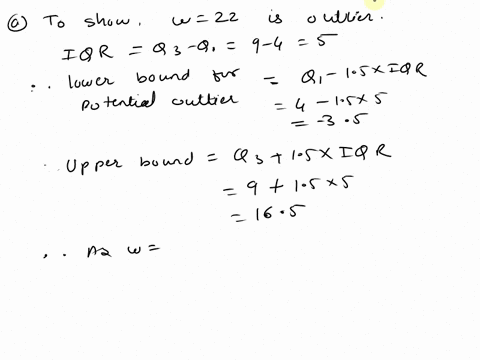 (a) To show, w = 22 is outlier.
IQR = Q3 - Q1 = 9 - 4 = 5
∴ lower bound for = Q1 - 1.5 × IQR
potential outlier = 4 - 1.5 × 5
= -3.5
∴ Upper bound = Q3 + 1.5 × IQR
= 9 + 1.5 × 5
= 16.5
∴ As w =